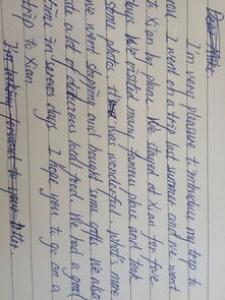 Dear Mike:
I'm very pleasure to introduce my trip to
you. I went on a trip last summer and we went
to Xian by plane. We stayed at Xian for five
days. We visited many famous place and took
some photos. It was wonderful. what's more,
we went shopping and bought some gifts. We also
had a lot of delicious food. We had a good
time in seven days. I hope you to go on a
trip to Xian
I'm looking forward to your